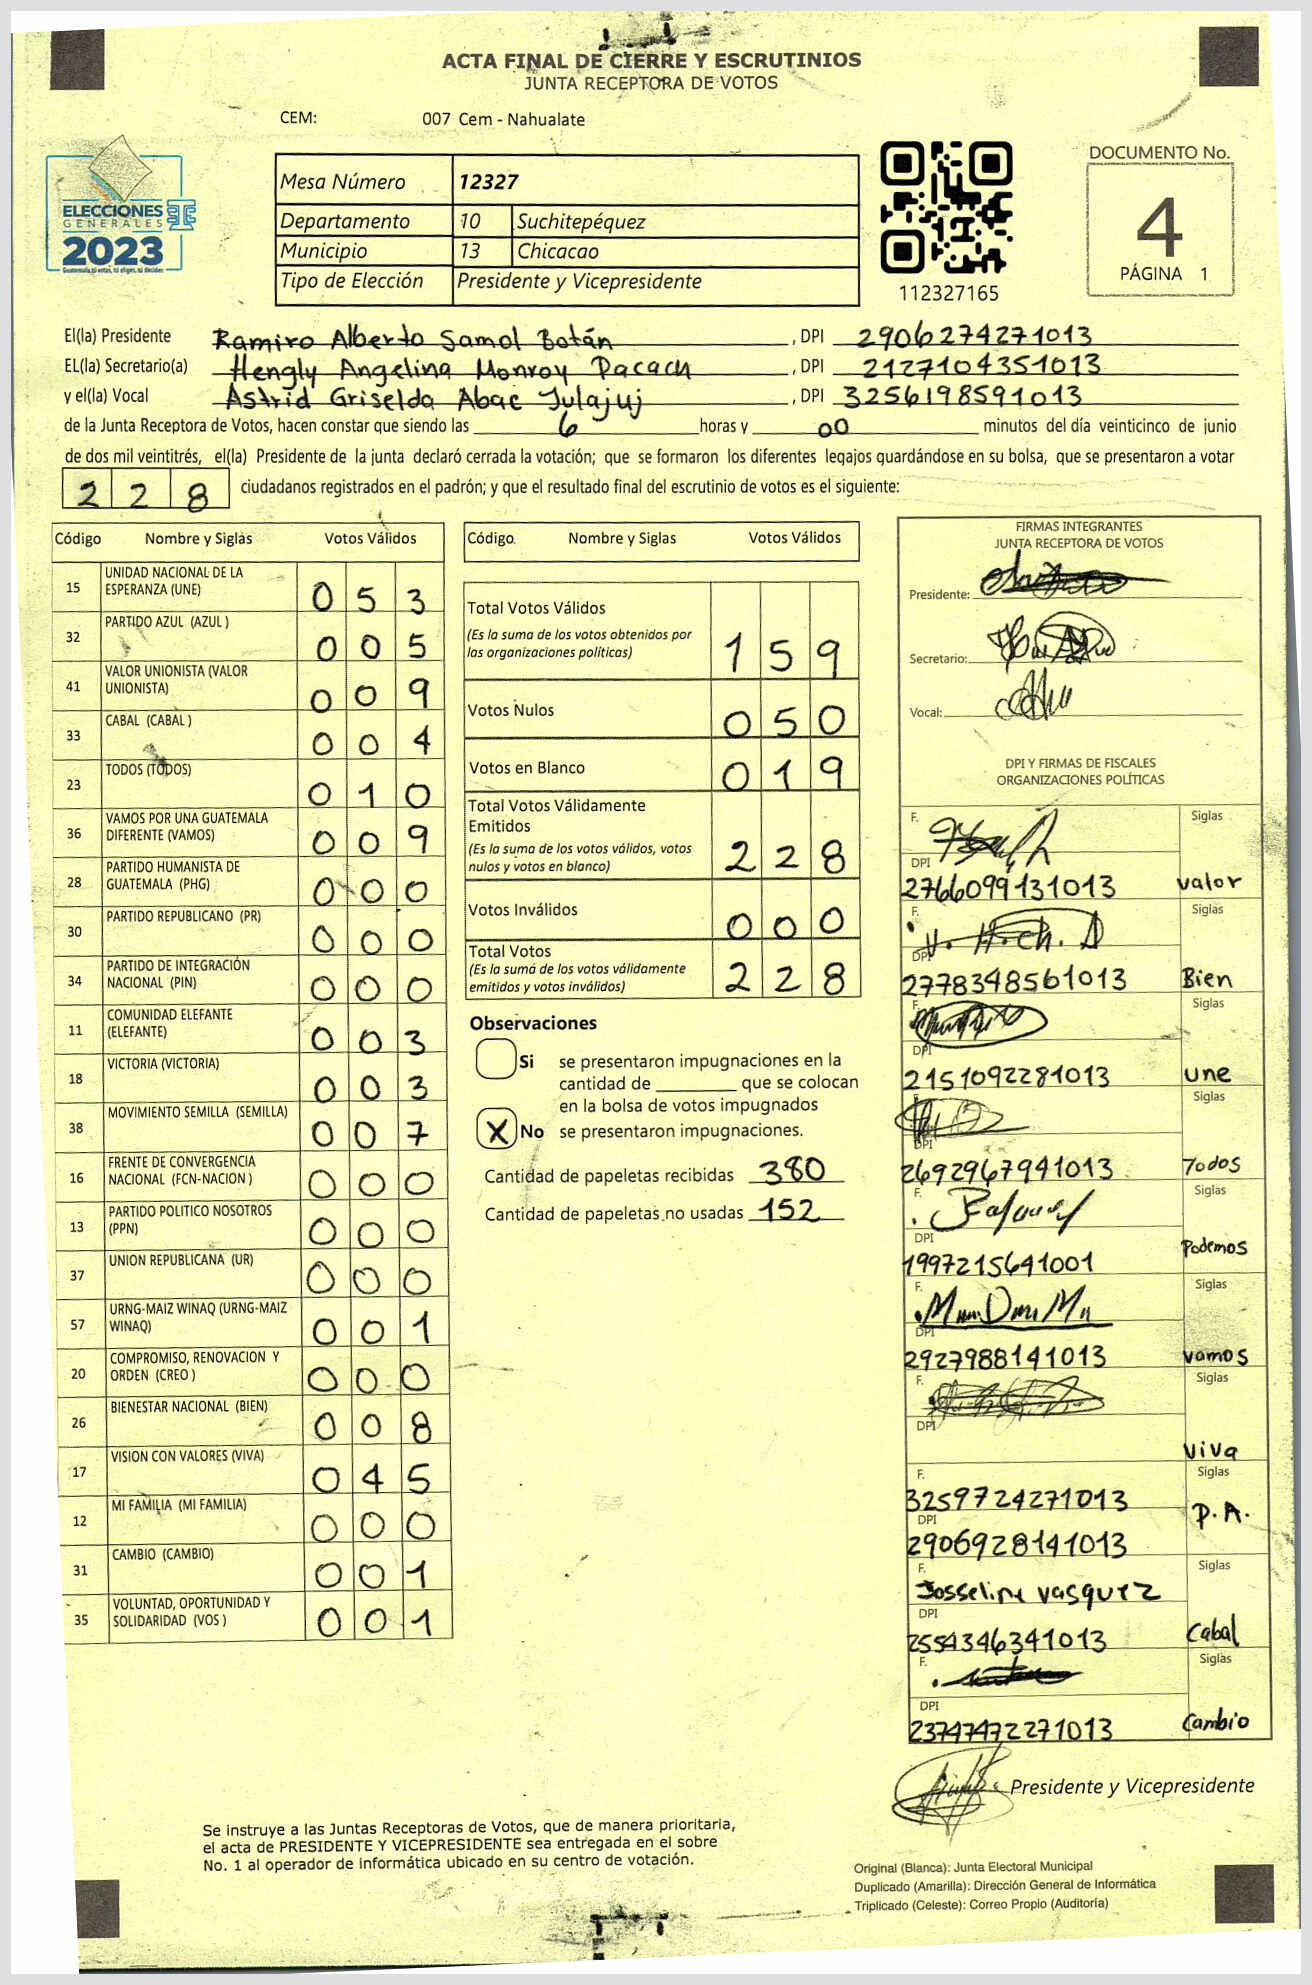 ACTA FINAL DE CIERRE Y ESCRUTINIOS
JUNTA RECEPTORA DE VOTOS
CEM: 007 Cem - Nahualate
ELECCIONES
GENERALES
2023
Guatemala tú votas, tú eliges, tú decides
Mesa Número 12327
Departamento 10 Suchitepéquez
Municipio 13 Chicacao
Tipo de Elección Presidente y Vicepresidente
112327165
DOCUMENTO No.
4
PÁGINA 1
El(la) Presidente Ramiro Alberto Samol Botán, DPI 2906274271013
EL(la) Secretario(a) Hengly Angelina Monroy Pacach, DPI 2127104351013
y el(la) Vocal Astrid Griselda Abac Julajuj, DPI 3256198591013
de la Junta Receptora de Votos, hacen constar que siendo las 6 horas y 00 minutos del día veinticinco de junio
de dos mil veintitrés, el(la) Presidente de la junta declaró cerrada la votación; que se formaron los diferentes legajos guardándose en su bolsa, que se presentaron a votar
228 ciudadanos registrados en el padrón; y que el resultado final del escrutinio de votos es el siguiente:
Código Nombre y Siglas Votos Válidos
15 UNIDAD NACIONAL DE LA ESPERANZA (UNE) 053
32 PARTIDO AZUL (AZUL ) 005
41 VALOR UNIONISTA (VALOR UNIONISTA) 009
33 CABAL (CABAL ) 004
23 TODOS (TODOS) 010
36 VAMOS POR UNA GUATEMALA DIFERENTE (VAMOS) 009
28 PARTIDO HUMANISTA DE GUATEMALA (PHG) 000
30 PARTIDO REPUBLICANO (PR) 000
34 PARTIDO DE INTEGRACIÓN NACIONAL (PIN) 000
11 COMUNIDAD ELEFANTE (ELEFANTE) 003
18 VICTORIA (VICTORIA) 003
38 MOVIMIENTO SEMILLA (SEMILLA) 007
16 FRENTE DE CONVERGENCIA NACIONAL (FCN-NACION ) 000
13 PARTIDO POLITICO NOSOTROS (PPN) 000
37 UNION REPUBLICANA (UR) 000
57 URNG-MAIZ WINAQ (URNG-MAIZ WINAQ) 001
20 COMPROMISO, RENOVACION Y ORDEN (CREO ) 000
26 BIENESTAR NACIONAL (BIEN) 008
17 VISION CON VALORES (VIVA) 045
12 MI FAMILIA (MI FAMILIA) 000
31 CAMBIO (CAMBIO) 001
35 VOLUNTAD, OPORTUNIDAD Y SOLIDARIDAD (VOS ) 001
Código. Nombre y Siglas Votos Válidos
Total Votos Válidos
(Es la suma de los votos obtenidos por las organizaciones políticas) 159
Votos Nulos 050
Votos en Blanco 019
Total Votos Válidamente Emitidos
(Es la suma de los votos válidos, votos nulos y votos en blanco) 228
Votos Inválidos 000
Total Votos
(Es la suma de los votos válidamente emitidos y votos inválidos) 228
Observaciones
Si se presentaron impugnaciones en la
cantidad de ________ que se colocan
en la bolsa de votos impugnados
X No se presentaron impugnaciones.
Cantidad de papeletas recibidas 380
Cantidad de papeletas no usadas 152
FIRMAS INTEGRANTES
JUNTA RECEPTORA DE VOTOS
Presidente:
Secretario:
Vocal:
DPI Y FIRMAS DE FISCALES
ORGANIZACIONES POLÍTICAS
F. Siglas
DPI
2766099131013 valor
F. Siglas
DPI
2778348561013 Bien
F. Siglas
DPI
2151092281013 une
Siglas
DPI
2692967941013 Todos
F. Siglas
DPI
1997215641001 Podemos
F. Siglas
DPI
2927988141013 vamos
F. Siglas
DPI
viva
F. Siglas
3259724271013
DPI P.A.
2906928141013
F. Siglas
Josseline vasquez
DPI
2554346341013 Cabal
F. Siglas
DPI
23747472271013 Cambio
Presidente y Vicepresidente
Se instruye a las Juntas Receptoras de Votos, que de manera prioritaria,
el acta de PRESIDENTE Y VICEPRESIDENTE sea entregada en el sobre
No. 1 al operador de informática ubicado en su centro de votación.
Original (Blanca): Junta Electoral Municipal
Duplicado (Amarilla): Dirección General de Informática
Triplicado (Celeste): Correo Propio (Auditoría)